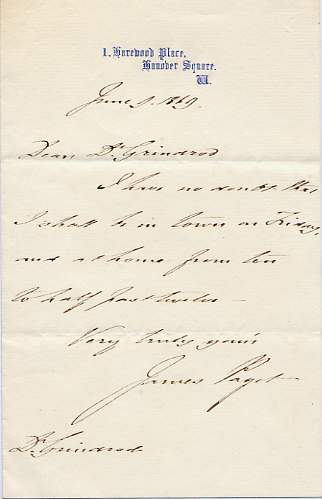 1. Harewood Place,
Hanover Square.
W.
June 9. 1869.
Dear Dr Grindrod
I have no doubt that
I shall be in town on Friday,
and at home from ten
to half past twelve –
Very truly yours
James Paget
Dr Grindrod